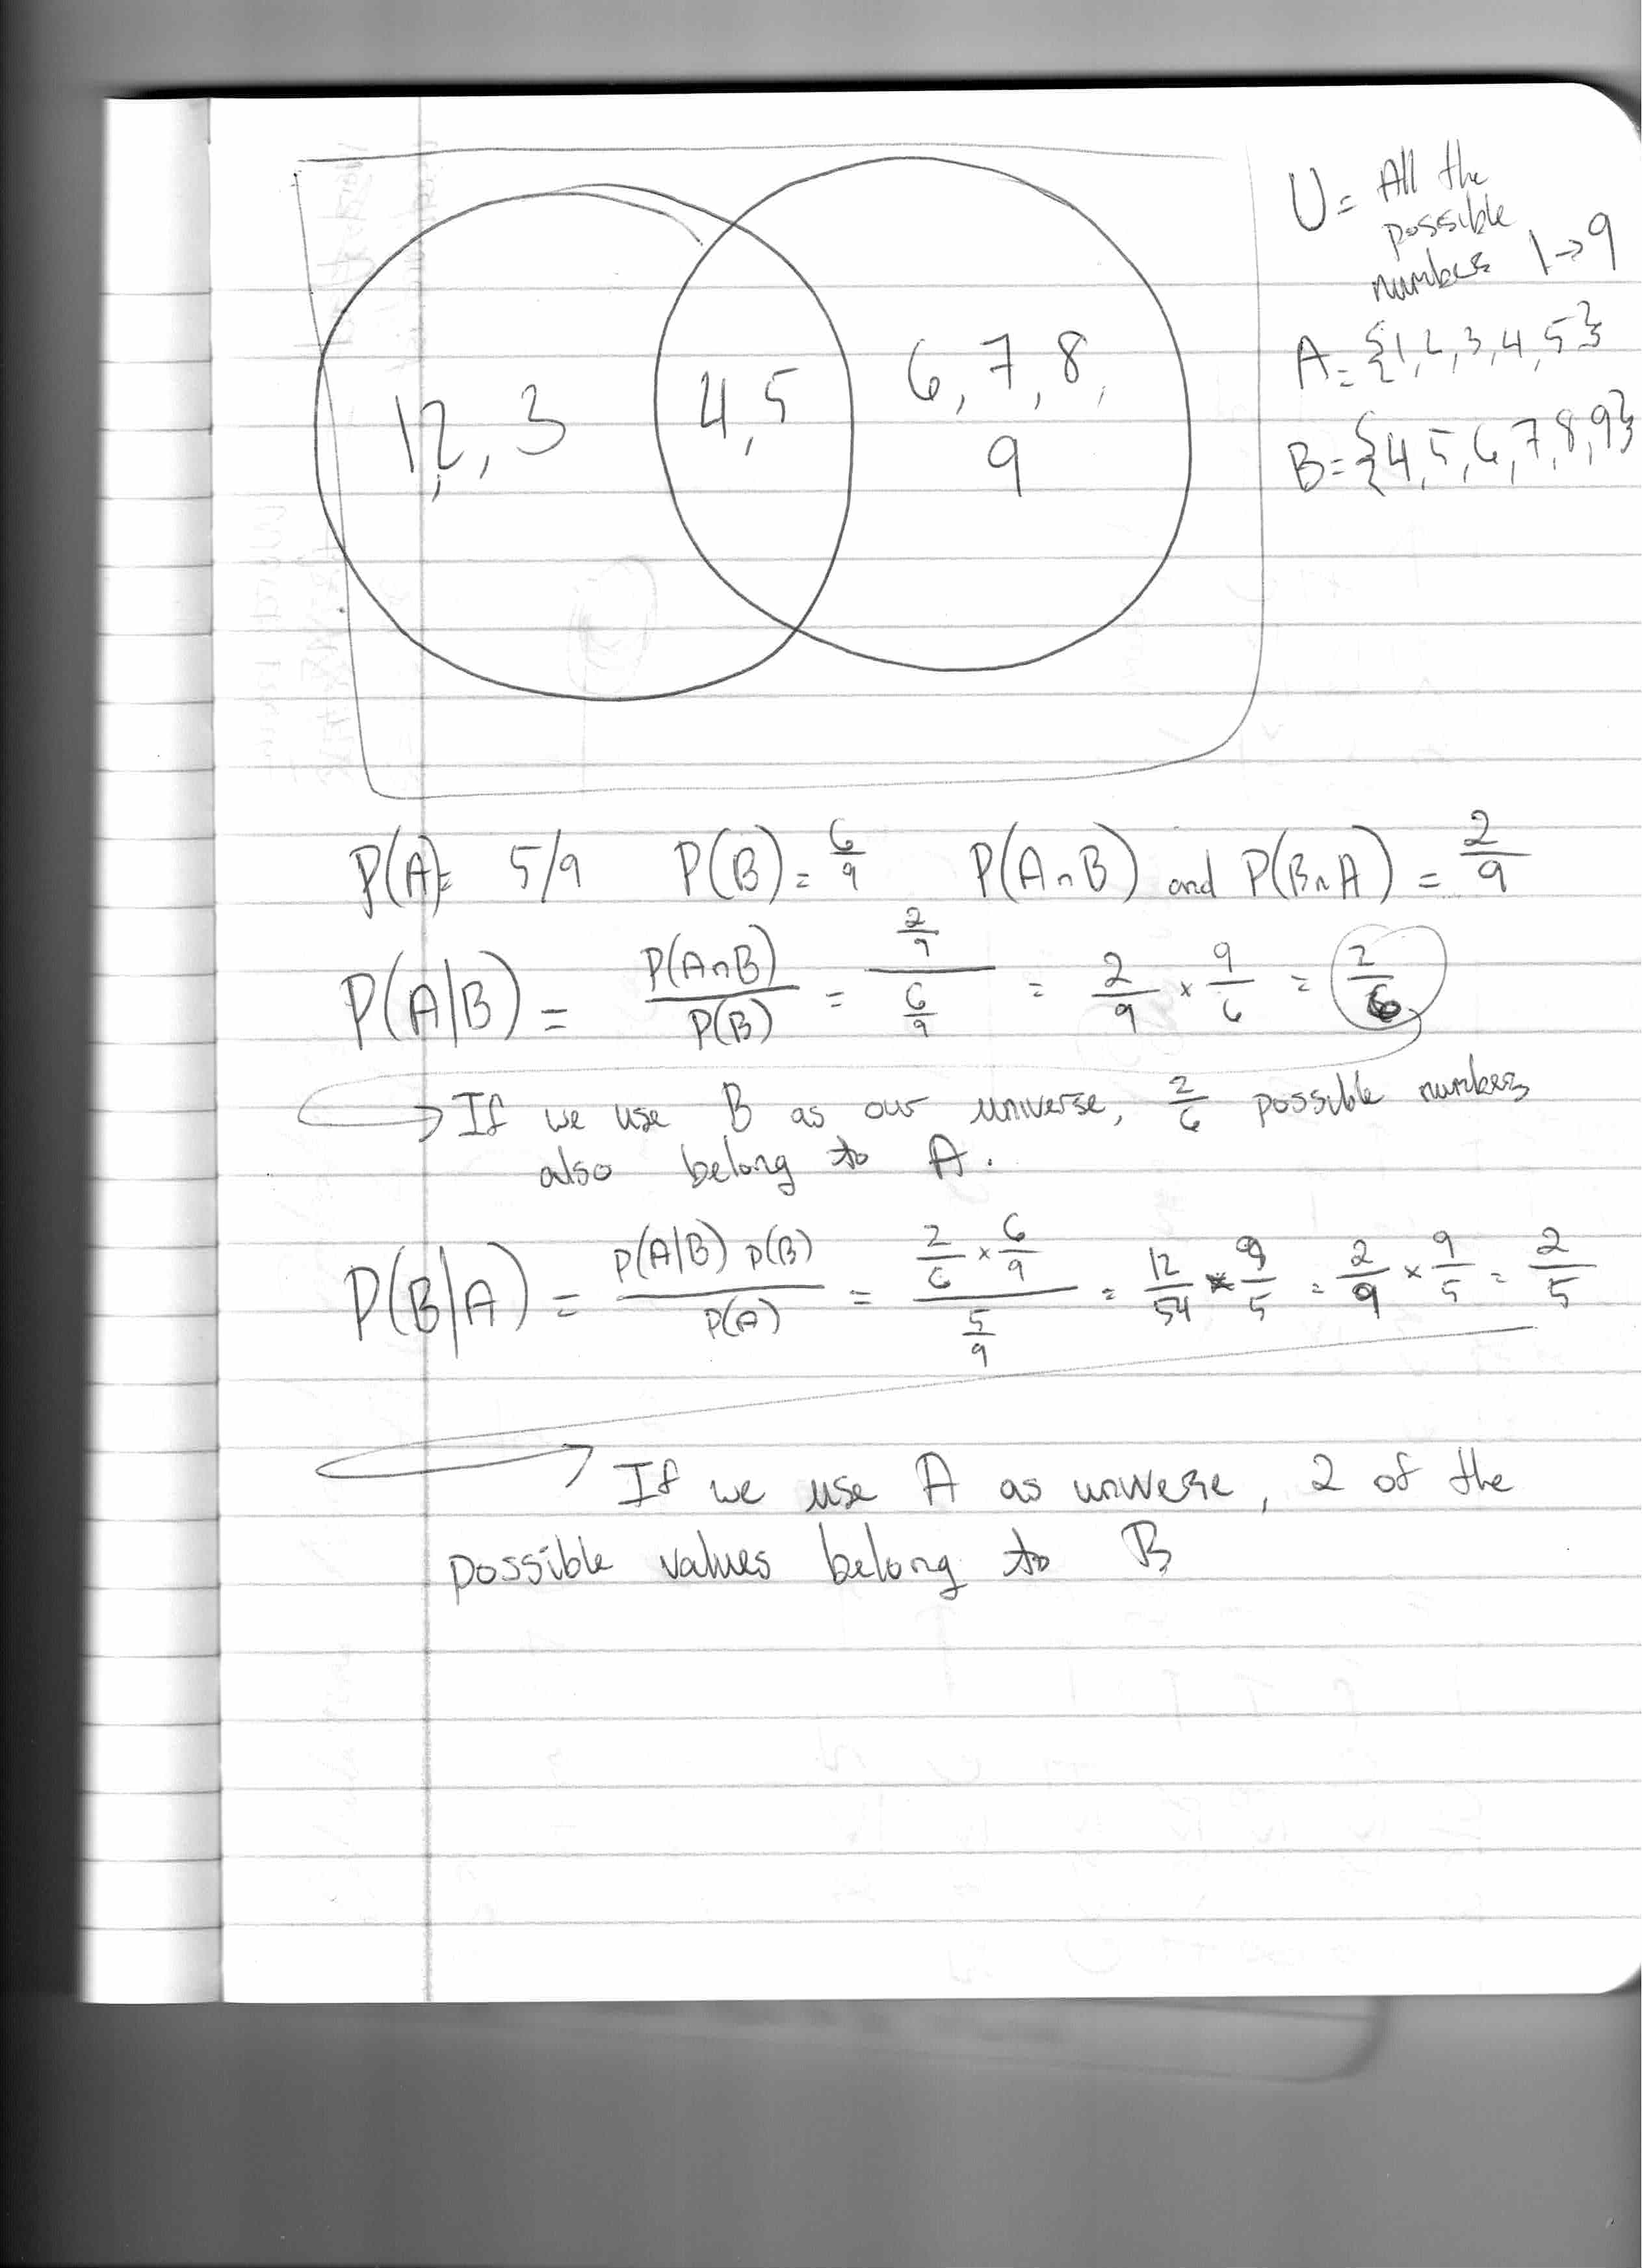 U = All the
possible
numbers 1→9
A = {1, 2, 3, 4, 5}
B = {4, 5, 6, 7, 8, 9}
1, 2, 3
4, 5
6, 7, 8,
9
P(A) = 5/9 P(B) = 6/9 P(A∩B) and P(B∩A) = 2/9
P(A|B) = P(A∩B)/P(B) = (2/9)/(6/9) = 2/9 × 9/6 = 2/6
→ If we use B as our universe, 2/6 possible numbers
also belong to A.
P(B|A) = P(A|B) P(B)/P(A) = (2/6 × 6/9)/(5/9) = 12/54 × 9/5 = 2/9 × 9/5 = 2/5
→ If we use A as universe, 2 of the
possible values belong to B